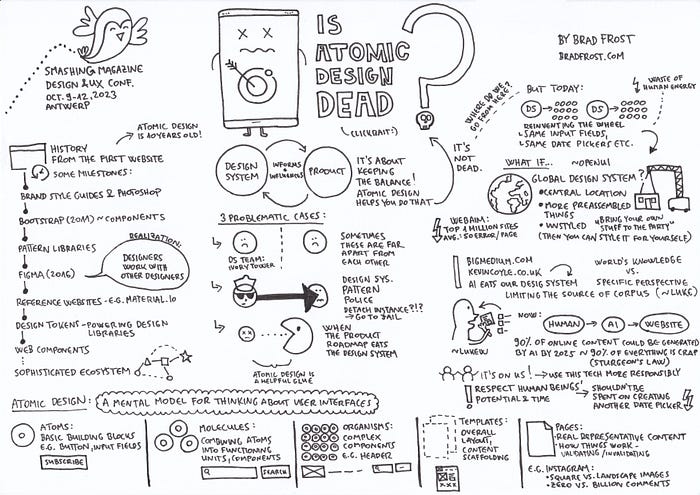 SMASHING MAGAZINE
DESIGN & UX CONF.
OCT. 9-12, 2023
ANTWERP
IS
ATOMIC
DESIGN
DEAD
?
(CLICKBAIT:)
BY BRAD FROST
BRADFROST.COM
ATOMIC DESIGN
IS 10 YEARS OLD!
HISTORY
FROM THE FIRST WEBSITE
SOME MILESTONES:
BRAND STYLE GUIDES & PHOTOSHOP
BOOTSTRAP (2011) ~ COMPONENTS
PATTERN LIBRARIES
REALIZATION:
DESIGNERS
WORK WITH
OTHER DESIGNERS
FIGMA (2016)
REFERENCE WEBSITES - E.G. MATERIAL.IO
DESIGN TOKENS - POWERING DESIGN
LIBRARIES
WEB COMPONENTS
SOPHISTICATED ECOSYSTEM
DESIGN
SYSTEM
INFORMS &
INFLUENCES
PRODUCT
IT'S ABOUT
KEEPING
THE BALANCE!
ATOMIC DESIGN
HELPS YOU DO THAT
IT'S
NOT
DEAD.
3 PROBLEMATIC CASES:
DS TEAM:
IVORY TOWER
SOMETIMES
THESE ARE FAR
APART FROM
EACH OTHER
DESIGN SYS.
PATTERN
POLICE
DETACH INSTANCE?!?
→ GO TO JAIL
WHEN
THE PRODUCT
ROADMAP EATS
THE DESIGN SYSTEM
ATOMIC DESIGN IS
A HELPFUL GLUE
WHERE DO WE
GO FROM HERE?
BUT TODAY:
WASTE OF
HUMAN ENERGY
DS
DS
REINVENTING THE WHEEL
SAME INPUT FIELDS,
SAME DATE PICKERS ETC.
WHAT IF... ~OPENUI
GLOBAL DESIGN SYSTEM?
• CENTRAL LOCATION
• MORE PREASSEMBLED
THINGS
• UNSTYLED "BRING YOUR OWN
STUFF TO THE PARTY"
(THEN YOU CAN STYLE IT FOR YOURSELF)
WEBAIM:
TOP 1 MILLION SITES
AVG. 50 ERROR/PAGE
BIGMEDIUM.COM
KEVINCOYLE.CO.UK
AI EATS OUR DESIG SYSTEM
WORLD'S KNOWLEDGE
VS.
SPECIFIC PERSPECTIVE
LIMITING THE SOURCE OF CORPUS (~LUKE)
~LUKEW
NOW:
HUMAN
AI
WEBSITE
90% OF ONLINE CONTENT COULD BE GENERATED
BY AI BY 2025 ~ 90% OF EVERYTHING IS CRAP
(STURGEON'S LAW)
IT'S ON US! → USE THIS TECH MORE RESPONSIBLY
RESPECT HUMAN BEINGS'
POTENTIAL & TIME
SHOULDN'T BE
SPENT ON CREATING
ANOTHER DATE PICKER
ATOMIC DESIGN: A MENTAL MODEL FOR THINKING ABOUT USER INTERFACES
ATOMS:
BASIC BUILDING BLOCKS
E.G. BUTTON, INPUT FIELDS
SUBSCRIBE
MOLECULES:
COMBINING ATOMS
INTO FUNCTIONING
UNITS, COMPONENTS
SEARCH
ORGANISMS:
COMPLEX
COMPONENTS
E.G. HEADER
TEMPLATES:
OVERALL
LAYOUT,
CONTENT
SCAFFOLDING
PAGES:
- REAL REPRESENTATIVE CONTENT
- HOW THINGS WORK -
VALIDATING/INVALIDATING
E.G. INSTAGRAM:
• SQUARE VS. LANDSCAPE IMAGES
• ZERO VS. BILLION COMMENTS